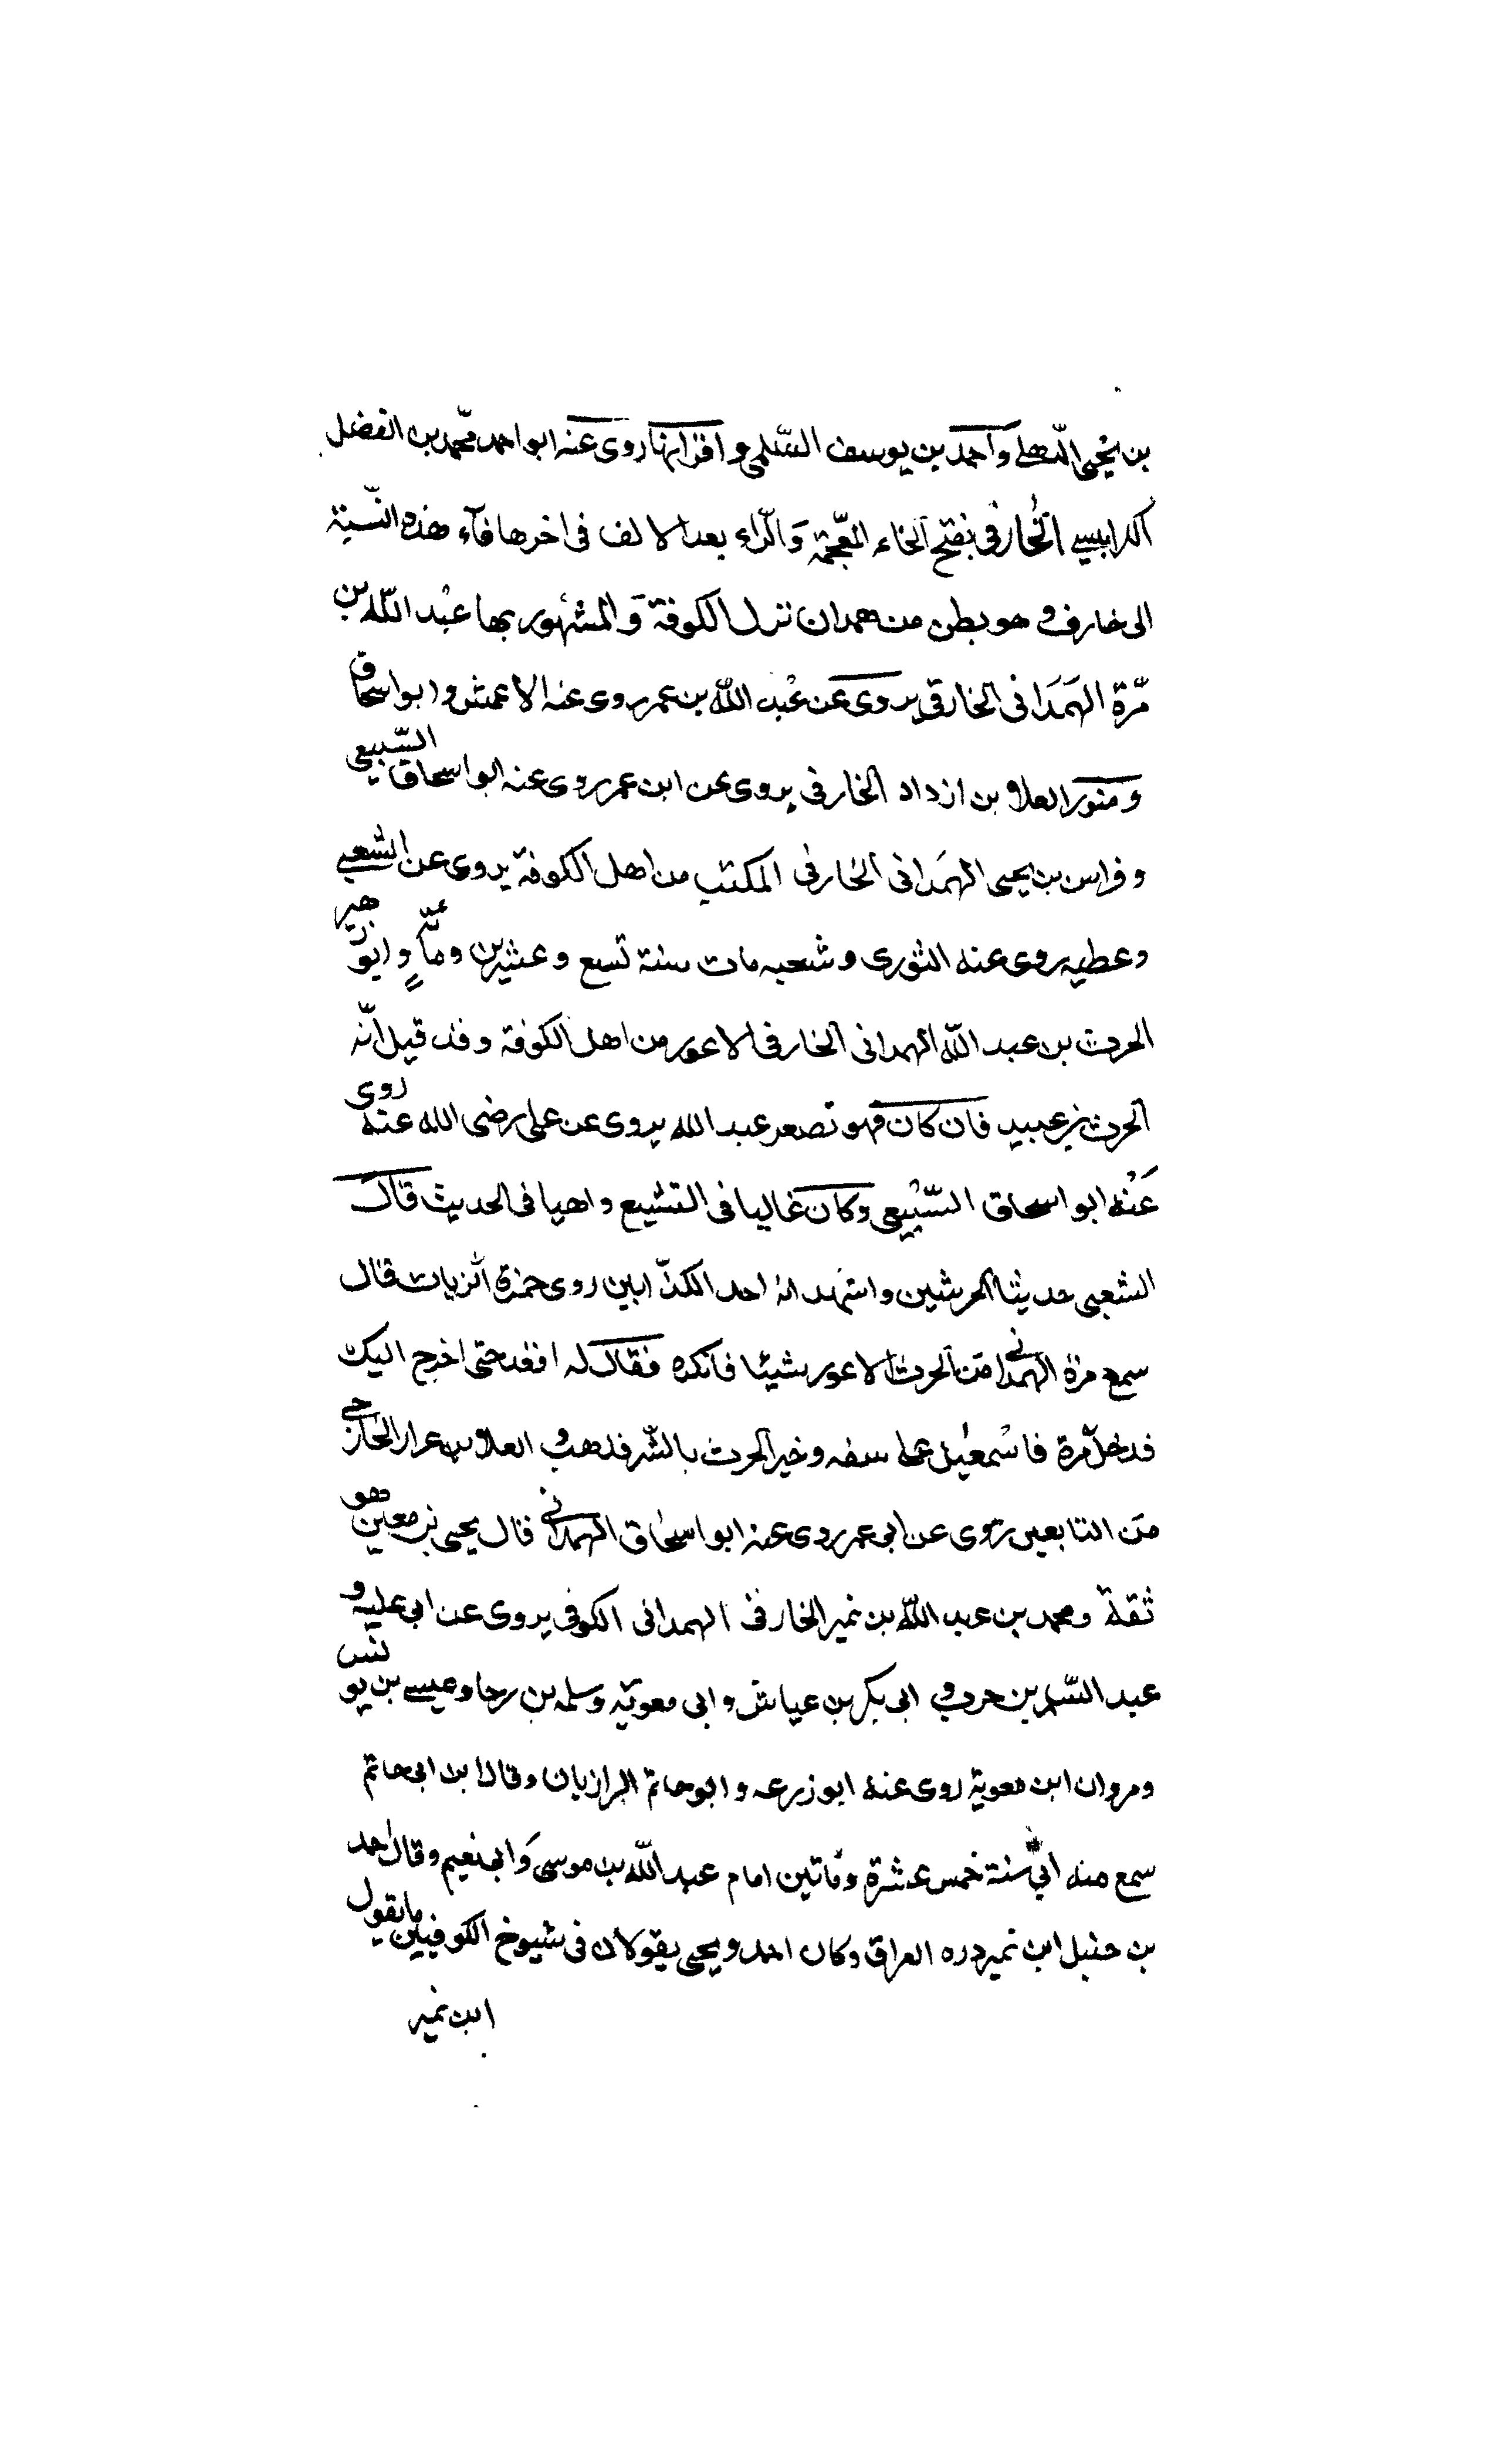 بن يحيى الذهلى وأحمد بن يوسف السّلمى واقرانهما روى عنه ابو احمد محمّد بن الفضل
الكرابيسى الخارفى بفتح الخاء المعجمة وَالرّاء بعد الالف فى اخرها فآء هذه النّسبة
الى خارف و هو بطن من همدان نزل الكوفة وَالمشهور بها عبْد اللّٰه بن
مّرة الهَمَدَانى الخارفى يروى عن عبد اللّٰه بن عمر روى عنه الاعمش وابو اسحاق
السّبيعى
و العلاء بن ازداد الخارفى يروى عن ابن عمر روى عنه ابو اسحاق
و فراس بن يحيى الهمَدانى الخارفى المكتب من اهل الكوفة يروى عن الشعبى
وعطيه روى عنه الثورى و شعبه مات سنة تسع و عشرين وابو زهير
الحرث بن عبد اللّه الهمدانى الخارفى الاعور من اهل الكوفة وقد قيل انّه
الحرث بن عبيد فان كان فهو تصعر عبد الله يروى عن على رضى الله عنه روى
عَنْه ابو اسحاق السّبيعى وكان غاليا فى التشيع واهيا فى الحديث قال
الشعبى حديثا الحرث واشهد انه احد الكذّابين روى حمزة الزيات قال
سمع مرة الهمدانى من الحرث الاعور شيئا فانكره فقال له اقعد حتى اخرج اليك
فدخل مّرة فاشمعيل على سيفه و الحرث بالشّر فذهب و العلاء بن عرار الخارجى
من التابعين روى عن ابى عمر روى عنه ابو اسحاق الهمدانى قال يحيى بن معين هو
ثقة ومحمد بن عبد اللّه بن نمير الخارفى الهمدانى الكوفى يروى عن ابى عليه و
عبد السّلم بن حرب و ابى بكر بن عياش و ابى معوية وسلمه بن رجاء وعيسى بن يونس
ومروان ابن معوية روى عنه ابو زرعه و ابو حاتم الرازيان وقال ابن ابى حاتم
سمع منه ابى سنة خمس عشرة ومٔاتين امام عبد اللّه بن موسى وَابى نعيم وقال احمد
بن حنبل ابن نمير دره العراق وكان احمد ويحيى يقولان فى شيوخ الكوفيين ما يقول
ابن نمير